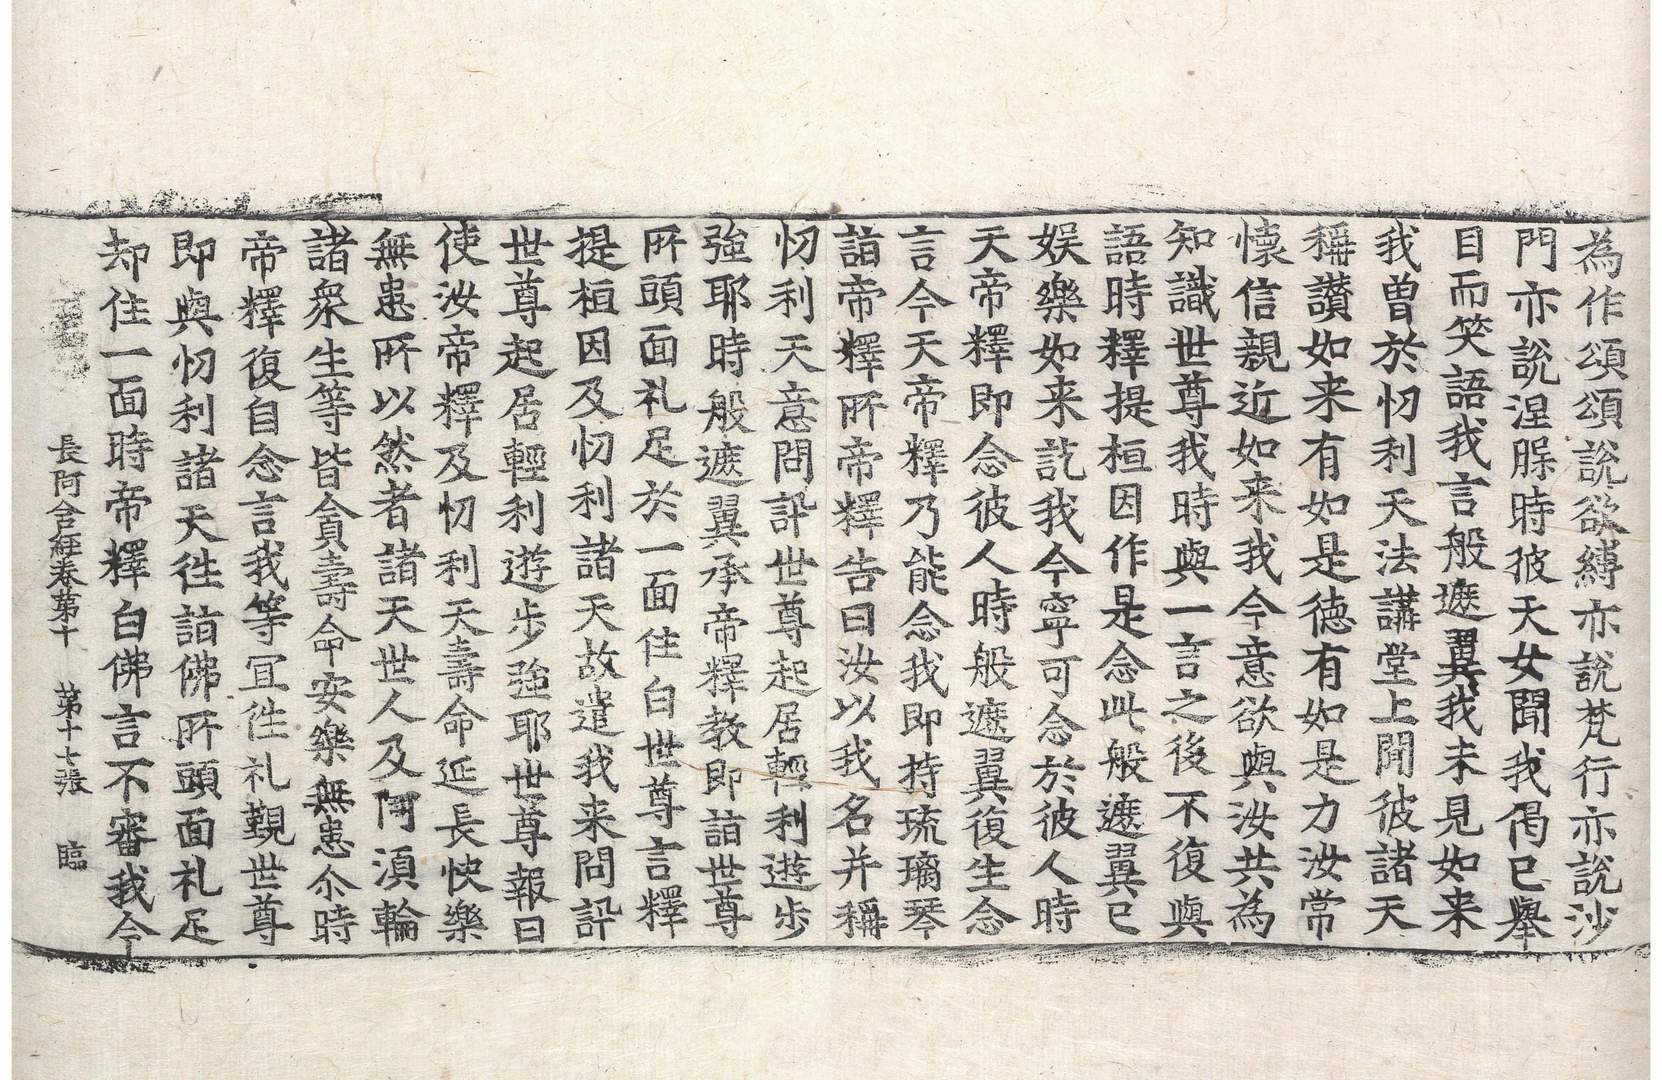 為作頌頌說欲縛亦說梵行亦說沙
門亦說涅㬷時彼天女聞我偈已舉
目而笑語我言般遮翼我未見如来
我曽於忉利天法講堂上聞彼諸天
稱讃如来有如是德有如是力汝常
懷信親近如来我今意欲與汝共為
知識世尊我時與一言之後不復與
語時釋提桓因作是念此般遮翼已
娱樂如来訖我今寧可念於彼人時
天帝釋即念彼人時般遮翼復生念
言今天帝釋乃能念我即持琉璃琴
詣帝釋所帝釋告曰汝以我名并稱
忉利天意問訊世尊起居輕利遊步
強耶時般遮翼承帝釋教即詣世尊
所頭面礼足於一面住白世尊言釋
提桓因及忉利諸天故遣我来問訊
世尊起居輕利遊步強耶世尊報曰
使汝帝釋及忉利天壽命延長快樂
無患所以然者諸天世人及阿湏輪
諸衆生等皆貪壽命安樂無患尒時
帝釋復自念言我等冝徃礼覲世尊
即與忉利諸天徃詣佛所頭面礼足
却住一面時帝釋白佛言不審我今
長阿含經卷苐十 苐十七張 臨